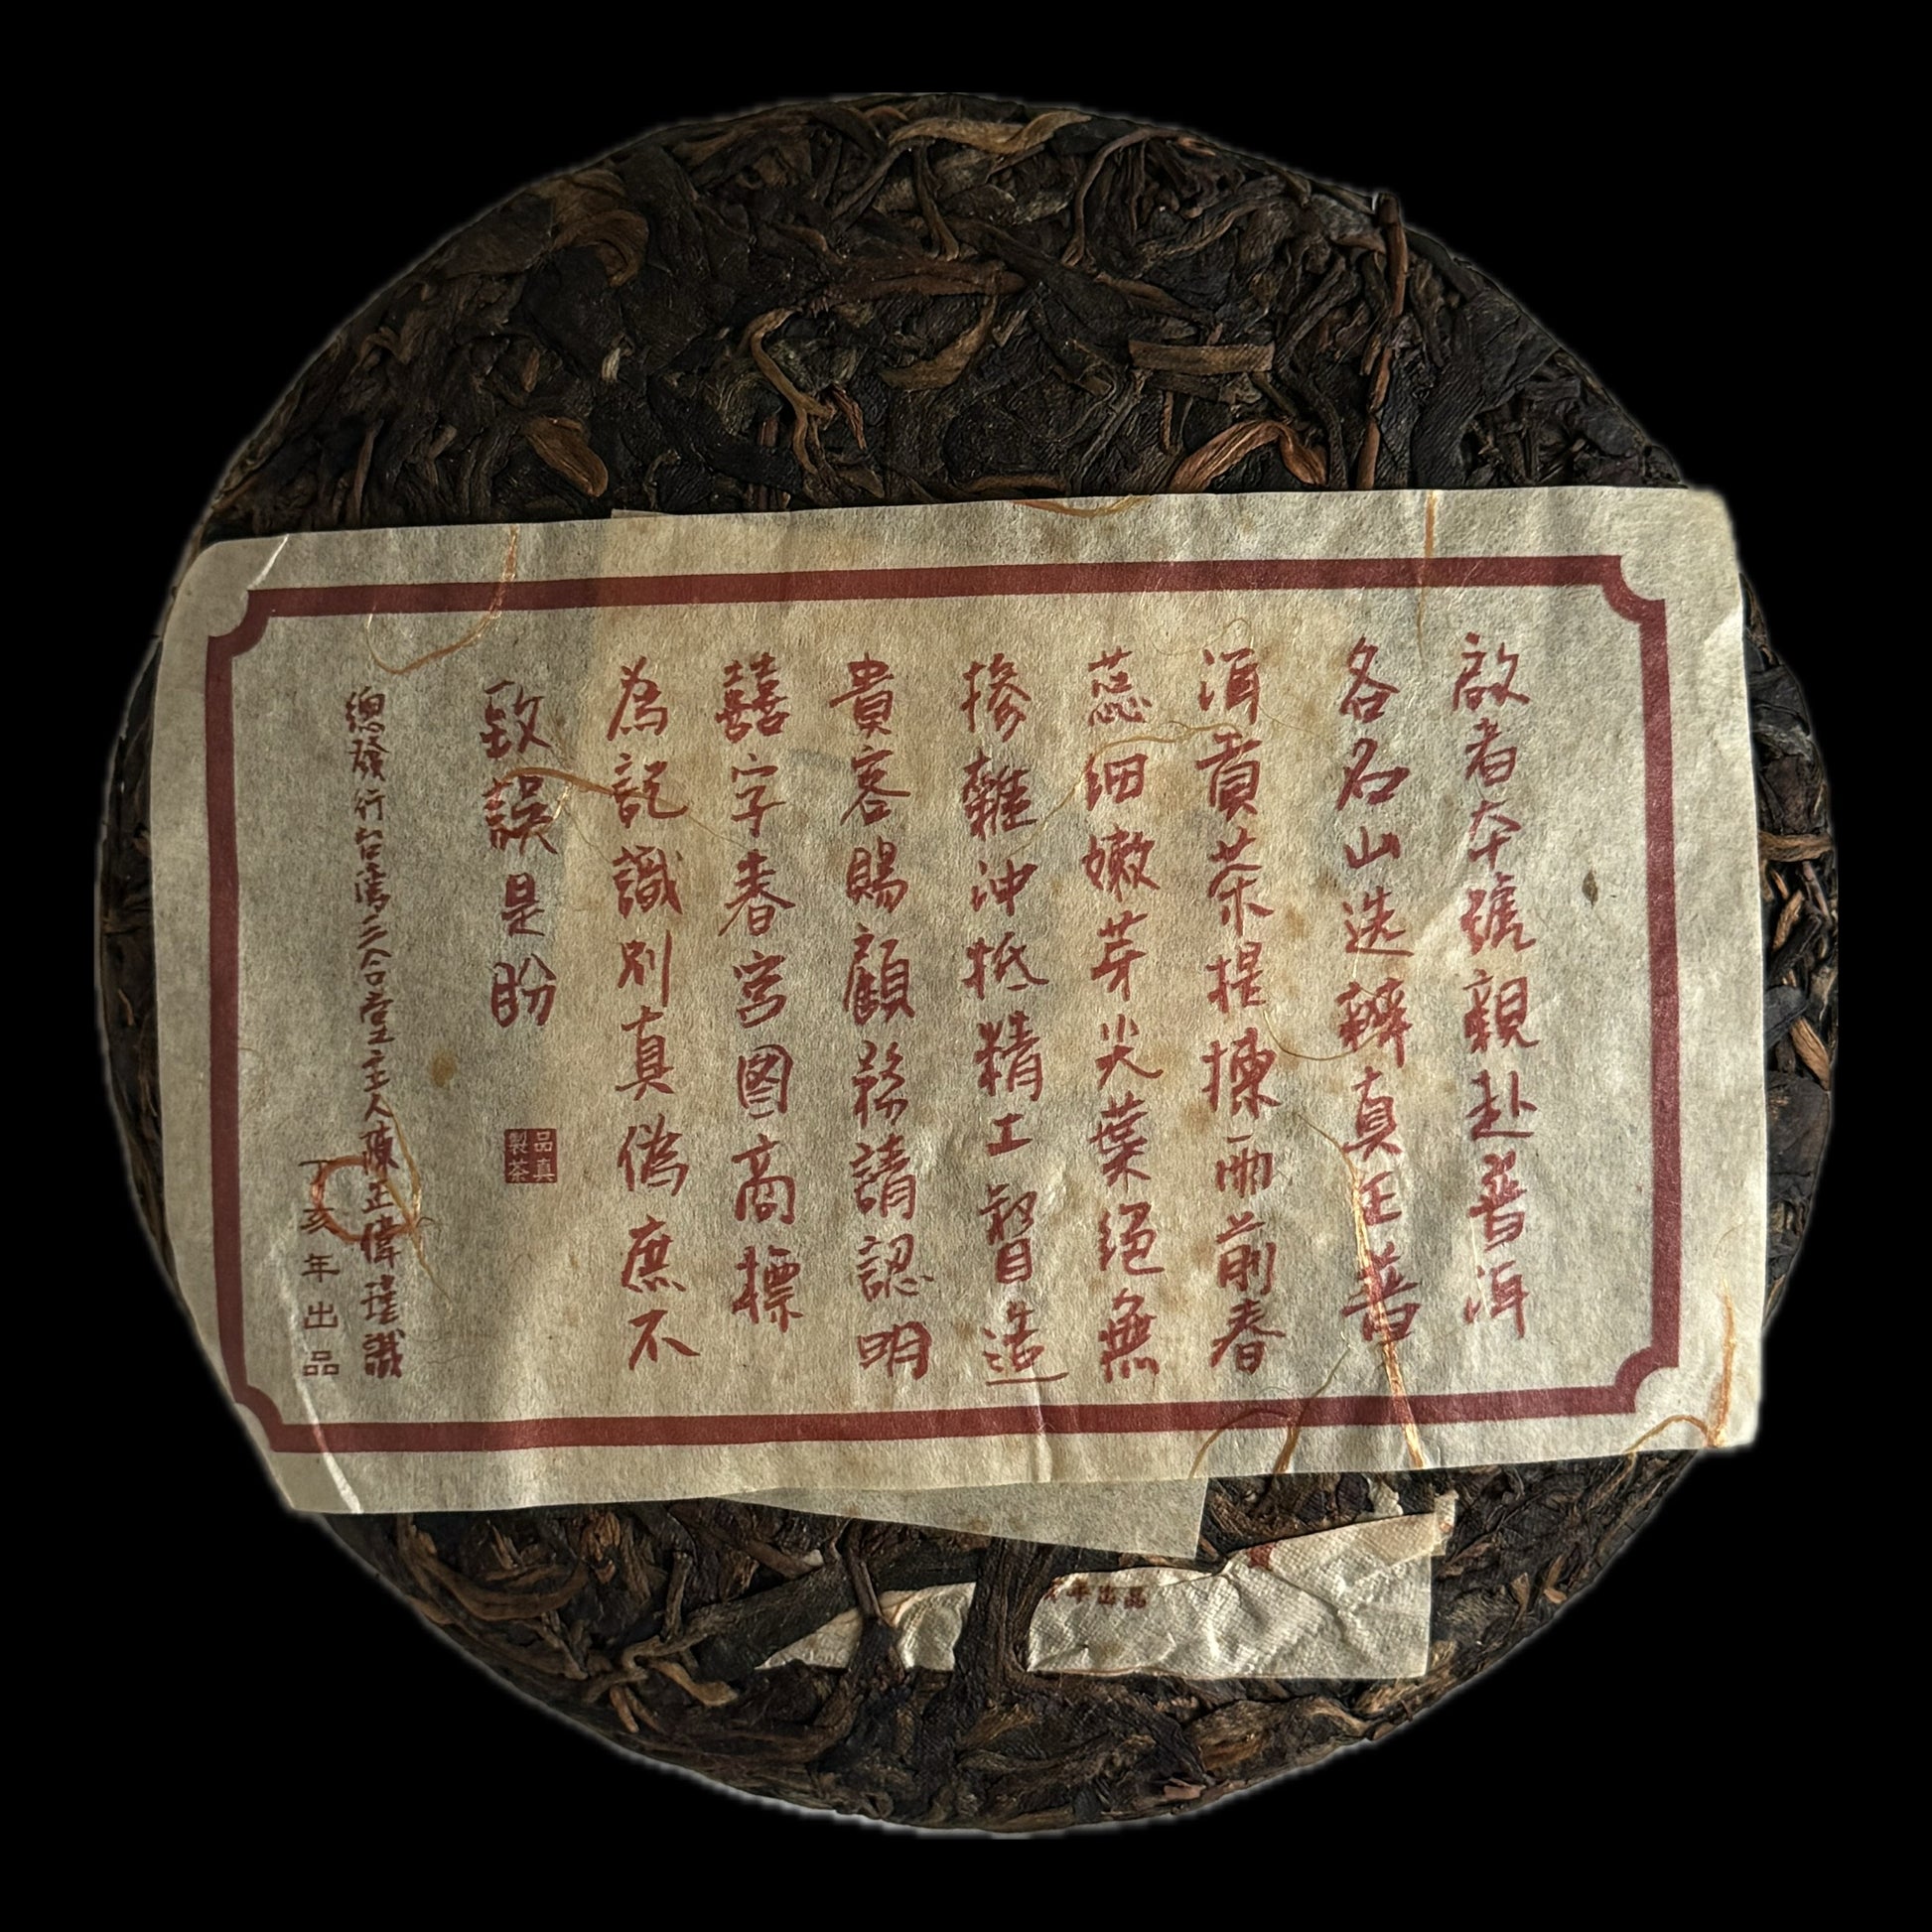 啟者本號親赴普洱
各名山选辨真正普
洱貢茶提揀雨前春
蕊细嫩芽尖葉絕無
掺雜冲抵精工督造
貴客賜顧務請認明
囍字春宮图商標
為記識别真偽庶不
致誤是盼
品真製茶
總發行台灣三合堂主人陳正偉瑾識
丁亥年出品
年出品